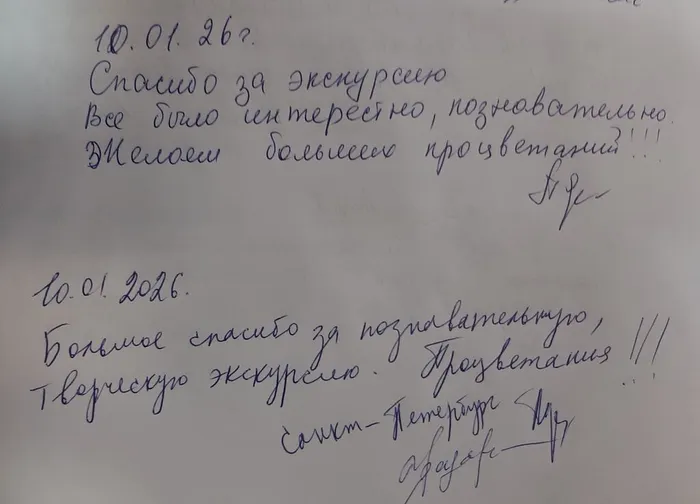 10.01.26г.
Спасибо за экскурсию
Все было интересно, познавательно.
Желаем больших процветаний!!!
10.01.2026.
Большое спасибо за познавательную,
творческую экскурсию. Процветания!!!
Санкт-Петербург